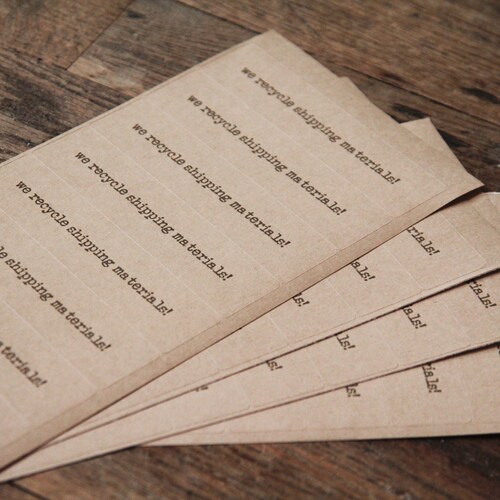 we recycle shipping materials!
we recycle shipping materials!
we recycle shipping materials!
we recycle shipping materials!
we recycle shipping materials!
recycle shipping materials!
materials!
ials!
ls!
ls!
ls!
ials!
ls!
ls!
ls!
ials!